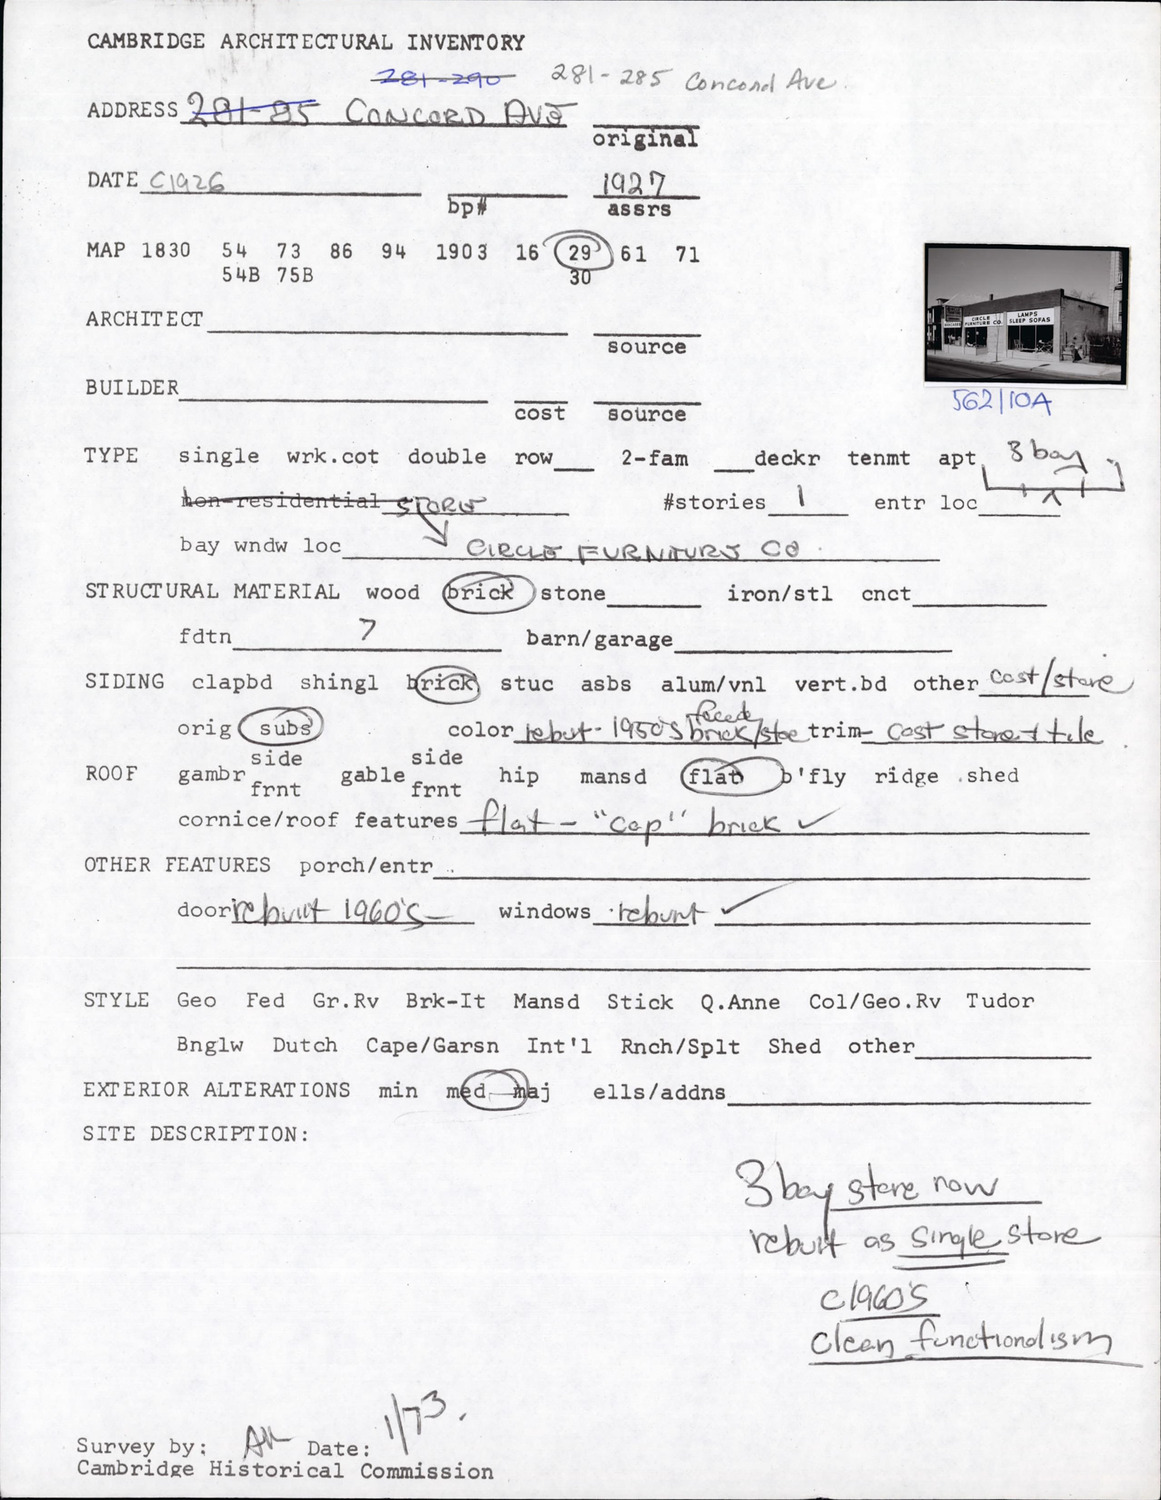 CAMBRIDGE ARCHITECTURAL INVENTORY
281-290 281-285 Concord Ave.
ADDRESS 281-85 CONCORD AVE
original
DATE C1926 1927
bp# assrs
MAP 1830 54 73 86 94 1903 16 29 61 71
54B 75B 30
ARCHITECT
source
BUILDER
cost source
CIRCLE FURNITURE CO
LAMPS SLEEP SOFAS
562/10A
TYPE single wrk.cot double row 2-fam deckr tenmt apt 3 bay
non-residential STORE #stories 1 entr loc
bay wndw loc CIRCLE FURNITURE CO.
STRUCTURAL MATERIAL wood brick stone iron/stl cnct
fdtn ? barn/garage
SIDING clapbd shingl brick stuc asbs alum/vnl vert.bd other cast/stone
orig subs color rebuilt- 1950's faced brick/stone trim- cast stone & tile
ROOF gambr side frnt gable side frnt hip mansd flat b'fly ridge shed
cornice/roof features flat - "cap" brick ✓
OTHER FEATURES porch/entr
door rebuilt 1960's windows rebuilt ✓
STYLE Geo Fed Gr.Rv Brk-It Mansd Stick Q.Anne Col/Geo.Rv Tudor
Bnglw Dutch Cape/Garsn Int'l Rnch/Splt Shed other
EXTERIOR ALTERATIONS min med maj ells/addns
SITE DESCRIPTION:
3 bay store now
rebuilt as single store
c1960's
clean functionalism
Survey by: Date: 1/73.
Cambridge Historical Commission